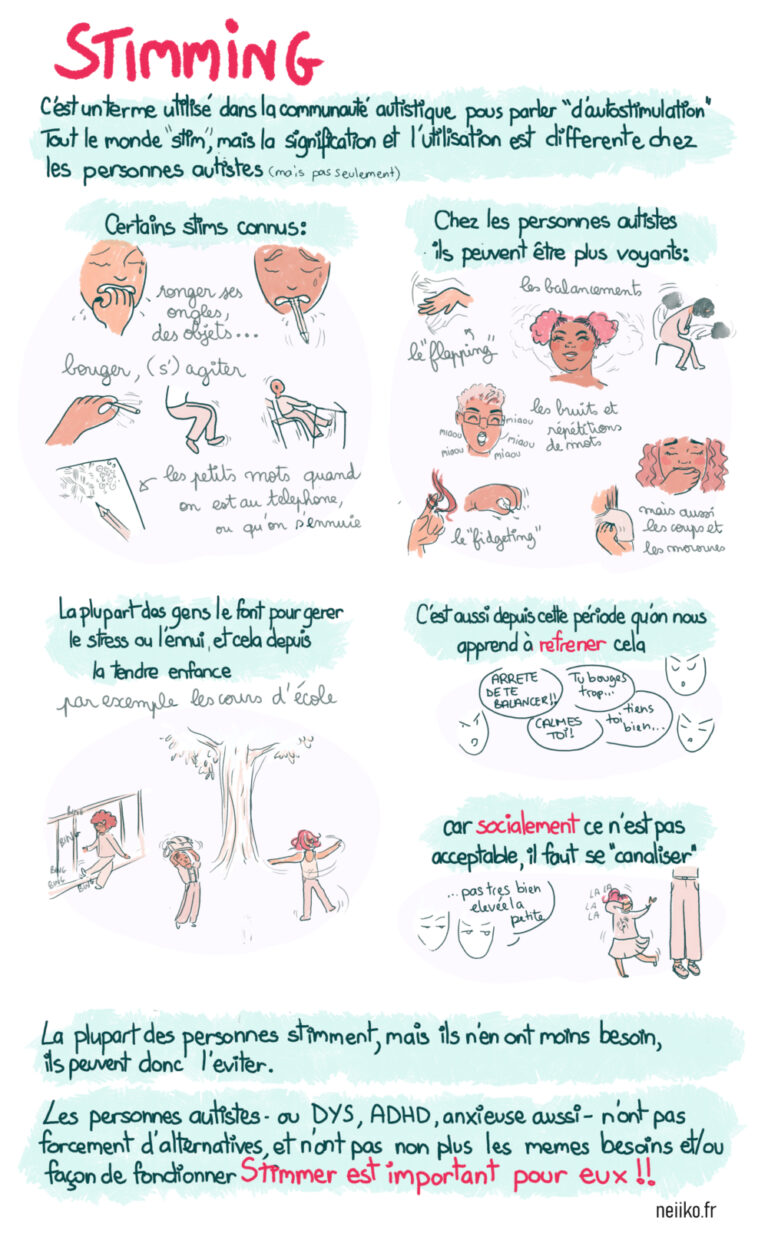 STIMMING
C'est un terme utilisé dans la communauté autistique pous parler "d'autostimulation"
Tout le monde "stim", mais la signification et l'utilisation est differente chez
les personnes autistes (mais pas seulement)
Certains stims connus:
ronger ses
ongles,
des objets...
bouger, (s') agiter
les petits mots quand
on est au telephone,
ou qu'on s'ennuie
Chez les personnes autistes
ils peuvent être plus voyants:
les balancements
le "flapping"
les bruit et
répétitions
de mots
miaou
miaou
miaou
miaou
miaou
miaou
le "fidgeting"
mais aussi
les coups et
les morsures
La plupart des gens le font pour gerer
le stress ou l'ennui, et cela depuis
la tendre enfance
par exemple les cours d'école
BING
BING
BING
BING
BING
C'est aussi depuis cette période qu'on nous
apprend à refrener cela
ARRETE
DE TE
BALANCER!!
Tu bouges
trop...
CALMES
TOI!
tiens
toi
bien...
car socialement ce n'est pas
acceptable, il faut se "canaliser"
...pas tres bien
elevée la
petite
LA LA
LA
LA
La plupart des personnes stimment, mais ils n'en ont moins besoin,
ils peuvent donc l'eviter.
Les personnes autistes - ou DYS, ADHD, anxieuse aussi - n'ont pas
forcement d'alternatives, et n'ont pas non plus les memes besoins et/ou
façon de fonctionner Stimmer est important pour eux!!
neiiko.fr